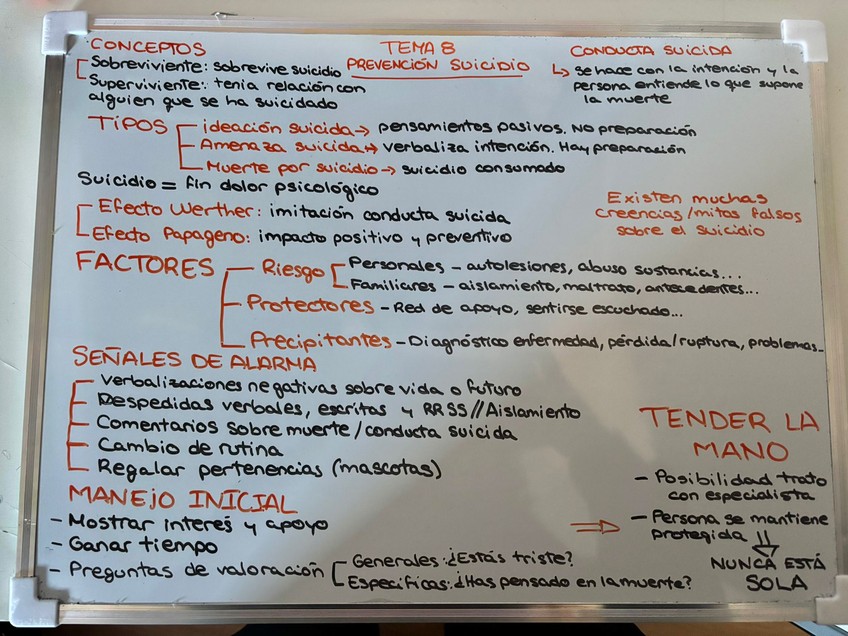 TEMA 8
PREVENCIÓN SUICIDIO
CONCEPTOS
Sobreviviente: sobrevive suicidio
Superviviente: tenía relación con
alguien que se ha suicidado
CONDUCTA SUICIDA
↳ se hace con la intención y la
persona entiende lo que supone
la muerte
TIPOS
ideación suicida → pensamientos pasivos. No preparación
Amenaza suicida → verbaliza intención. Hay preparación
Muerte por suicidio → suicidio consumado
Suicidio = fin dolor psicológico
Efecto Werther: imitación conducta suicida
Efecto Papageno: impacto positivo y preventivo
Existen muchas
creencias/mitos falsos
sobre el suicidio
FACTORES
Riesgo
Personales - autolesiones, abuso sustancias...
Familiares - aislamiento, maltrato, antecedentes...
Protectores - Red de apoyo, sentirse escuchado...
Precipitantes - Diagnóstico enfermedad, pérdida/ruptura, problemas...
SEÑALES DE ALARMA
Verbalizaciones negativas sobre vida o futuro
Despedidas verbales, escritas y RRSS // Aislamiento
Comentarios sobre muerte/conducta suicida
Cambio de rutina
Regalar pertenencias (mascotas)
MANEJO INICIAL
- Mostrar interés y apoyo
- Ganar tiempo
- Preguntas de valoración
Generales: ¿Estás triste?
Específicas: ¿Has pensado en la muerte?
TENDER LA
MANO
- Posibilidad trato
con especialista
- Persona se mantiene
protegida
NUNCA ESTÁ
SOLA